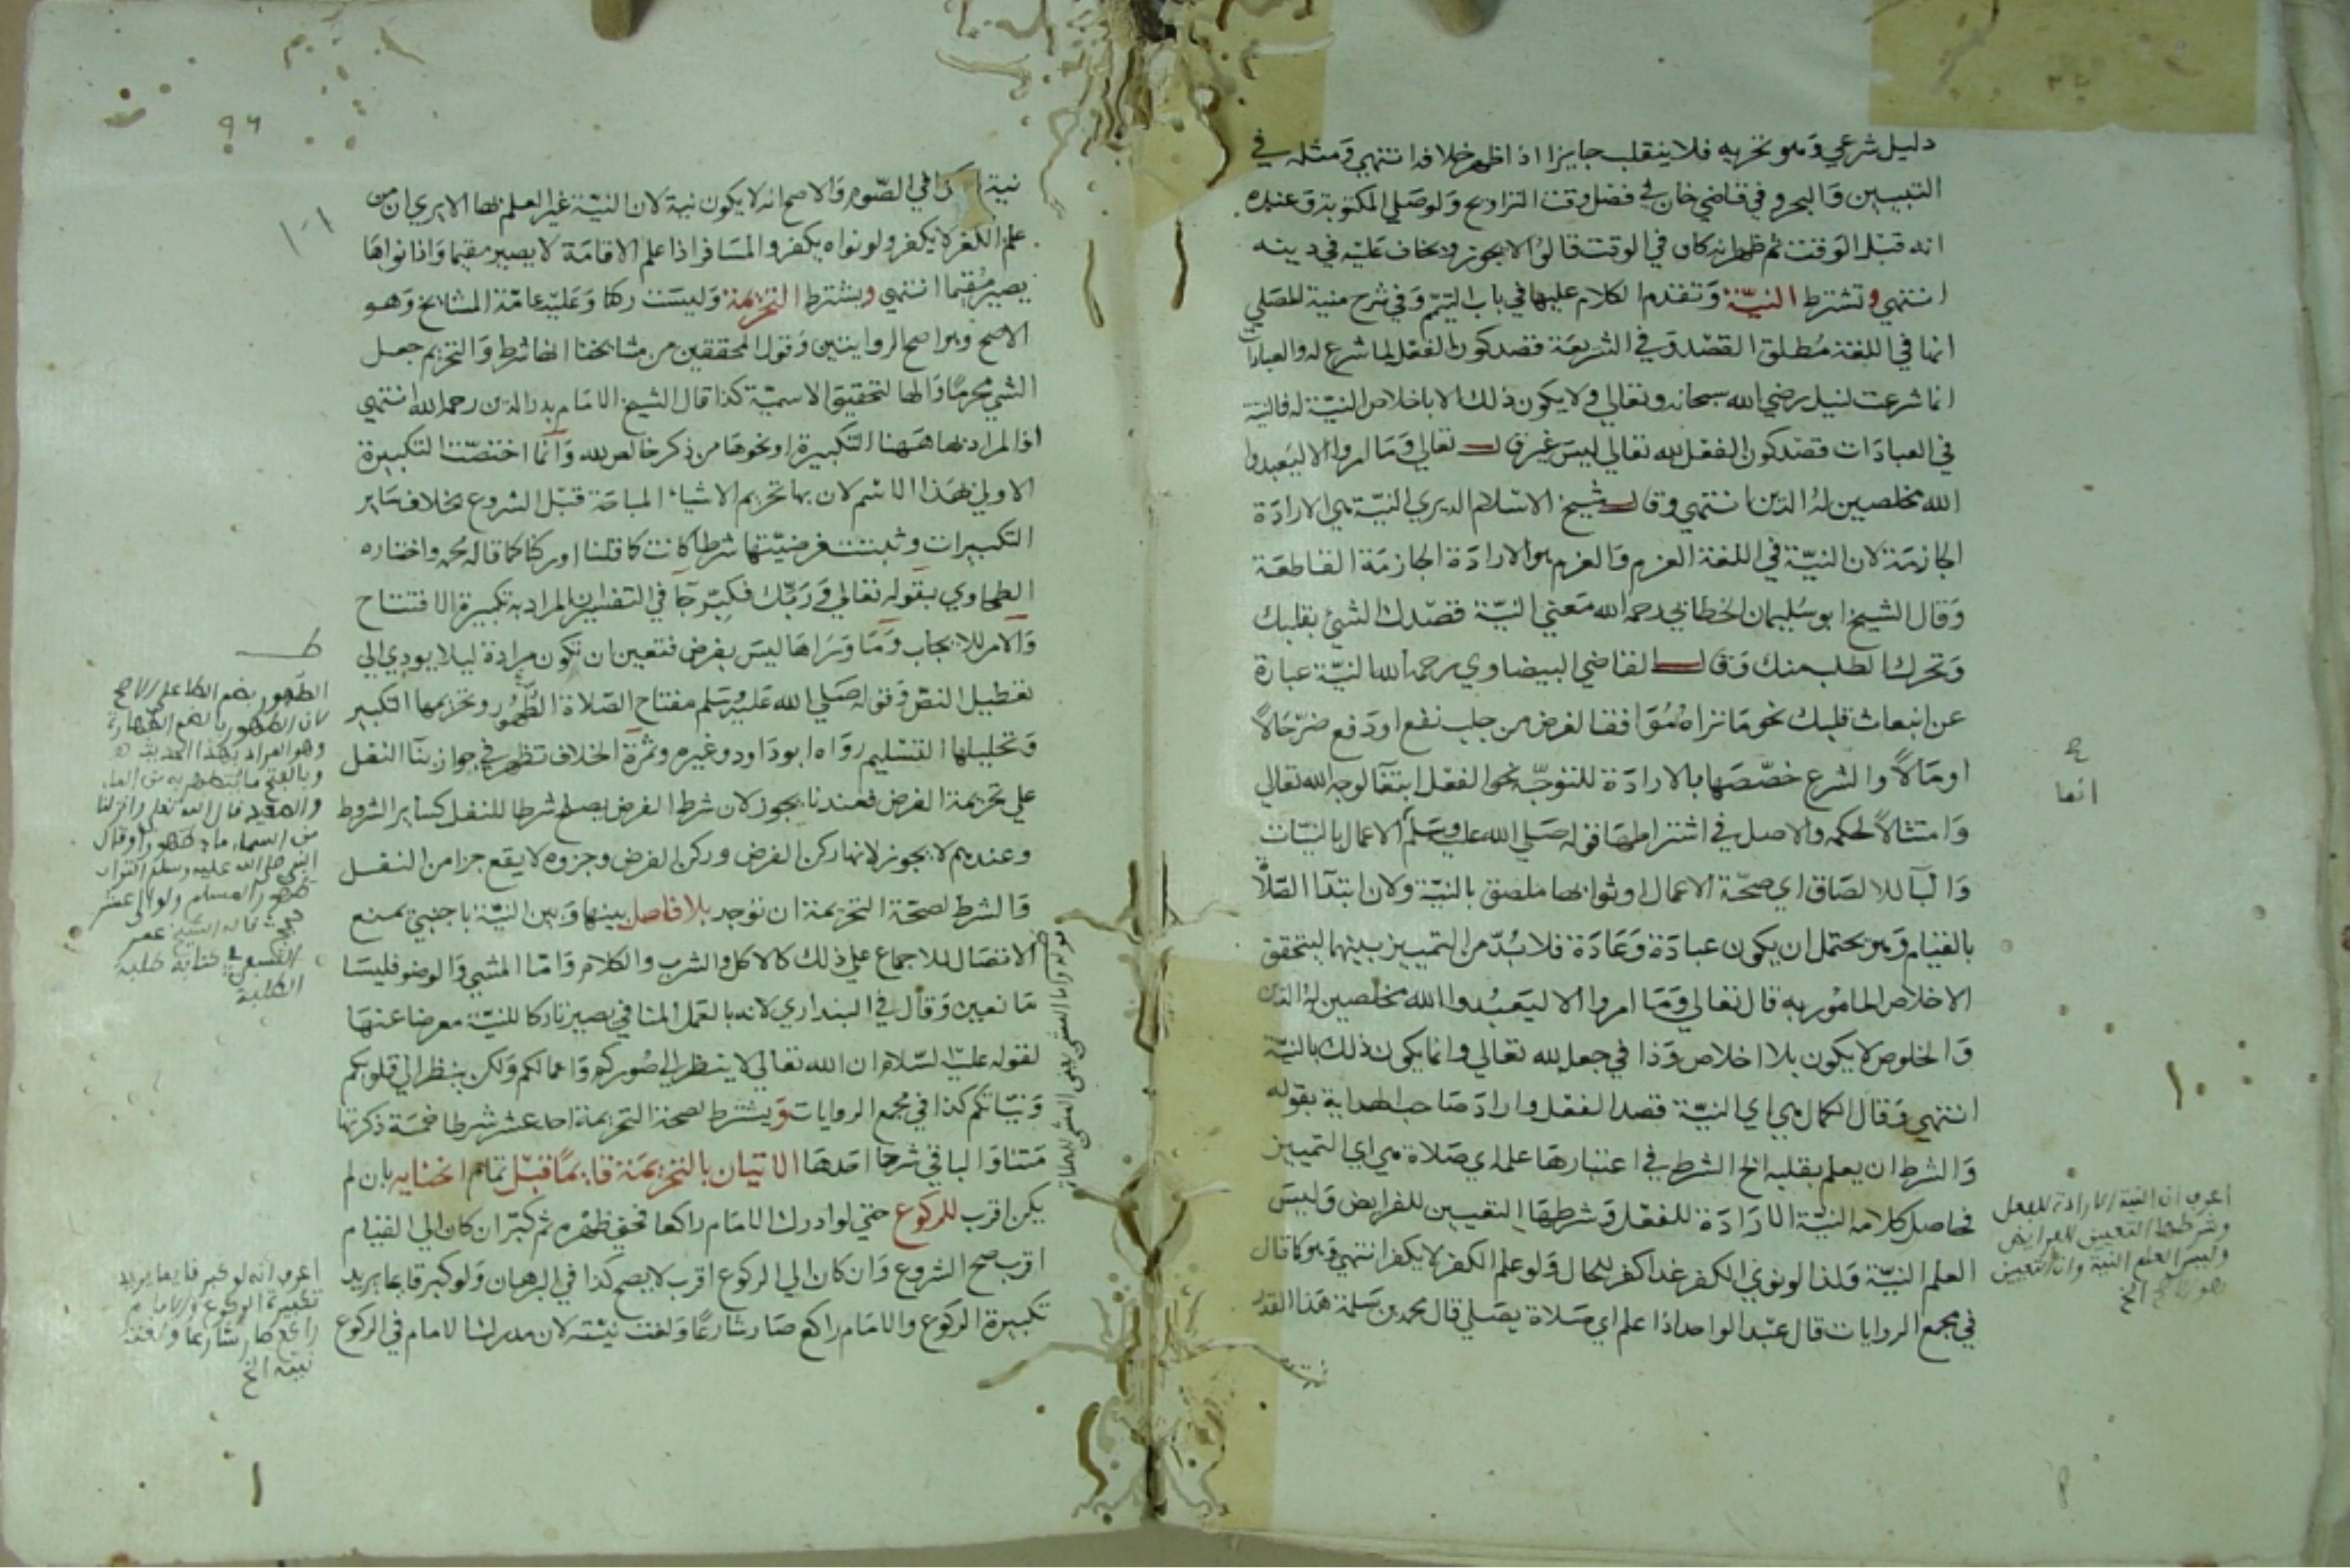 دليل شرعي وهو تحريه فلا ينقلب جايزا اذا ظهر خلافه انتهي ومثله في
التبيين والبحر وفي قاضي خان في فصل وقت التراويح ولو صلي المكتوبة وعنده
انه قبل الوقت ثم ظهر انه كان في الوقت قالوا لا يجوز ويخاف عليه في دينه
انتهي وتشترط النية وتقدم الكلام عليها في باب التيمم وفي شرح منية المصلي
انها في اللغة مطلق القصد وفي الشريعة قصد كون الفعل لما شرع له والعبادات
انما شرعت لنيل رضي الله سبحانه وتعالي ولا يكون ذلك الا باخلاص النية له فالنية
في العبادات قصد كون الفعل لله تعالي ليس غير قال تعالي وما امروا الا ليعبدوا
الله مخلصين له الدين انتهي وقال شيخ الاسلام الديري النية هي الارادة
الجازمة لان النية في اللغة العزم والعزم هو الارادة الجازمة القاطعة
وقال الشيخ ابو سليمان الخطابي رحمه الله معني النية قصدك الشئ بقلبك
وتحرك الطلب منك وقال القاضي البيضاوي رحمه الله النية عبارة
عن انبعاث قلبك نحو ما تراه موافقا لغرض من جلب نفع او دفع ضر حالا
او مالا والشرع خصصها بالارادة للتوجه نحو الفعل ابتغا لوجه الله تعالي
وامتثالا لحكمه والاصل في اشتراطها قوله صلي الله عليه وسلم الاعمال بالنيات
والبا للالصاق اي صحة الاعمال او ثوابها ملصق بالنية ولان ابتدا الصلاة
بالقيام وهو يحتمل ان يكون عبادة وعادة فلا بد من التمييز بينهما ليتحقق
الاخلاص المامور به قال تعالي وما امروا الا ليعبدوا الله مخلصين له الدين
والخلوص لا يكون بلا اخلاص وذا في جعله لله تعالي وانما يكون ذلك بالنية
انتهي وقال الكمال هي اي النية قصد الفعل واراد صاحب الهداية بقوله
والشرط ان يعلم بقلبه الخ الشرط في اعتبارها علمه اي صلاة هي اي التمييز
فحاصل كلامه النية الارادة للفعل وشرطها التعيين للفرايض وليس
العلم النية ولذا لو نوي الكفر غدا كفر للحال ولو علم الكفر لا يكفر انتهي وهو كما قال
في مجمع الروايات قال عبد الواحد اذا علم اي صلاة يصلي قال محمد بن سلمة هذا القدر
انها
اعرف ان النية الارادة للفعل
وشرطها التعيين للفرايض
وليس العلم النية وان التعيين
هو الخ
٩٦
نية في الصوم والاصح انه لا يكون نية لان النية غير العلم بها الا يري ان من
علم الكفر لا يكفر ولو نواه يكفر والمسافر اذا علم الاقامة لا يصير مقيما واذا نواها
يصير مقيما انتهي ويشترط التحريمة وليست ركنا وعليه عامة المشايخ وهو
الاصح وهو اصح الروايتين وقول المحققين من مشايخنا انها شرط والتحريم جعل
الشئ محرما والها لتحقيق الاسمية كذا قال الشيخ الامام بدر الدين رحمه الله انتهي
اذ المراد بها ههنا التكبيرة او نحوها من ذكر خالص لله وانما اختصت التكبيرة
الاولي بهذا الاسم لان بها تحريم الاشياء المباحة قبل الشروع بخلاف ساير
التكبيرات وثبتت فرضيتها شرطا كانت كما قلنا او ركنا كما قاله محمد واختاره
الطحاوي بقوله تعالي وربك فكبر جا في التفسير ان المراد به تكبيرة الافتتاح
والامر للايجاب وما وراها ليس بفرض فتعين ان تكون مرادة ليلا يودي الي
تعطيل النص وقوله صلي الله عليه وسلم مفتاح الصلاة الطهور وتحريمها التكبير
وتحليلها التسليم رواه ابو داود وغيره وثمرة الخلاف تظهر في جواز بنا النفل
علي تحريمة الفرض فعندنا يجوز لان شرط الفرض يصلح شرطا للنفل كساير الشروط
وعندهم لا يجوز لانها ركن الفرض وركن الفرض وجزوه لا يقع جزا من النفل
والشرط لصحة التحريمة ان توجد بلا فاصل بينها وبين النية باجنبي يمنع
الاتصال للاجماع علي ذلك كالاكل والشرب والكلام واما المشي والوضو فليسا
مانعين وقال في البنداري لانه بالعمل المنافي يصير تاركا للنية معرضا عنها
لقوله عليه السلام ان الله تعالي لا ينظر الي صوركم واعمالكم ولكن ينظر الي قلوبكم
ونياتكم كذا في مجمع الروايات ويشترط لصحة التحريمة احد عشر شرطا خمسة ذكرتها
متنا والباقي شرحا احدها الاتيان بالتحريمة قايما قبل تمام انحنايه بان لم
يكن اقرب للركوع حتي لو ادرك الامام راكعا فحني ظهره ثم كبر ان كان الي القيام
اقرب صح الشروع وان كان الي الركوع اقرب لا يصح كذا في البرهان ولو كبر قايما يريد
تكبيرة الركوع والامام راكع صار شارعا ولغت نيته لان مدرك الامام في الركوع
الطهور بضم الطا علي الاصح
لان الطهور بالضم الطهارة
وهو المراد بهذا الحديث
وبالفتح ما يتطهر به من الماء
والصعيد قال الله تعالي وانزلنا
من السماء ماء طهورا وقال
النبي صلي الله عليه وسلم التراب
طهور المسلم ولو الي عشر
حجج قاله الشيخ عمر
النسفي في كتابه طلبة
الطلبة
اعرف انه لو كبر قايما يريد
تكبيرة الركوع والامام
راكع صار شارعا ولغت
نيته الخ